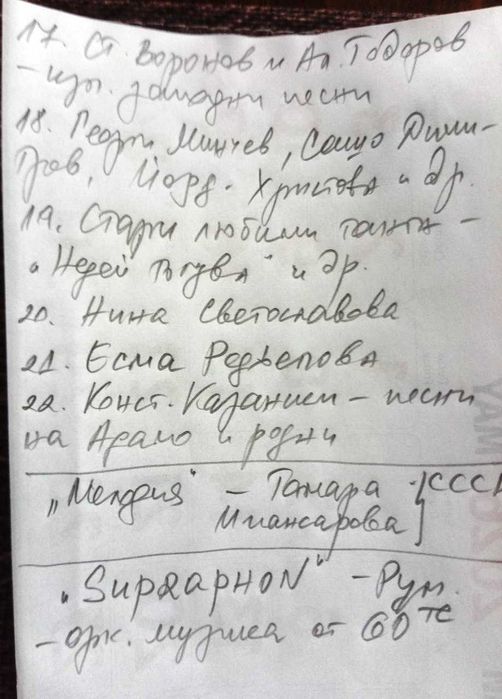 17. Ст. Воронов и Ал. Тодоров
– изп. западни песни
18. Георги Минчев, Сашо Дими-
тров, Йорд. Христова и др.
19. Стари любими танга –
"Недей тъгува" и др.
20. Нина Светославова
21. Есма Реджепова
22. Конст. Казански – песни
на Адамо и родни
„Мелодия" – Тамара СССР
Миансарова
„Supraphon" – Рум.
– орк. музика от 60те